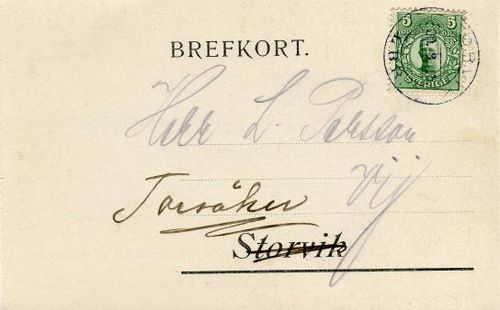 BREFKORT.
5 5
SVERIGE
Herr L. Persson
Vij
Torsåker
Storvik